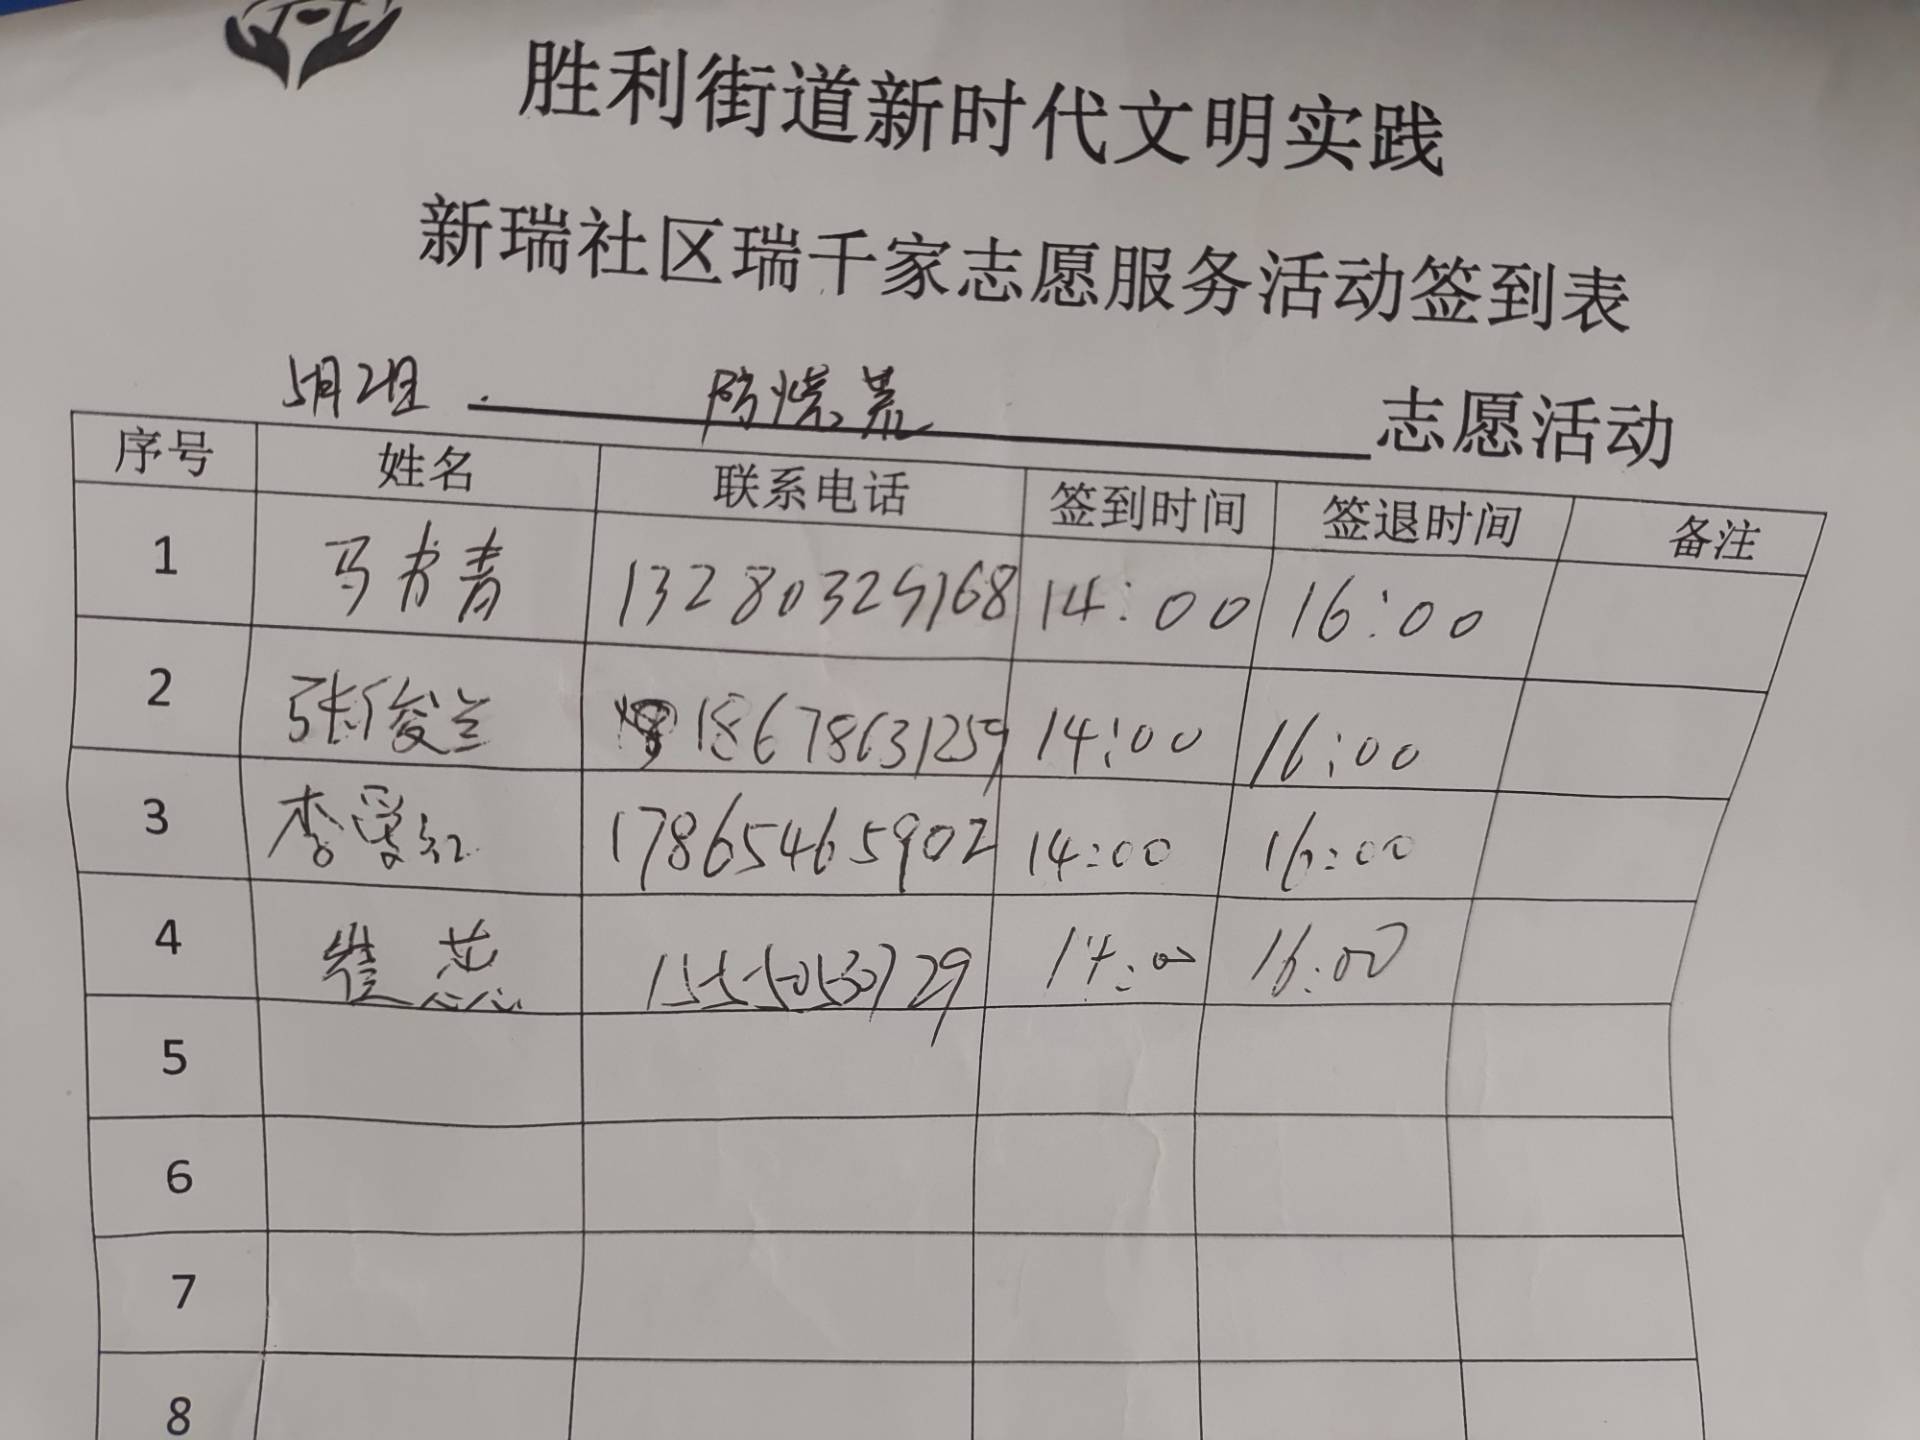 胜利街道新时代文明实践
新瑞社区瑞千家志愿服务活动签到表
5月2日 防烧荒 志愿活动
序号 姓名 联系电话 签到时间 签退时间 备注
1 马书青 13280325168 14:00 16:00
2 张俊兰 18678631259 14:00 16:00
3 李爱红 17865465902 14:00 16:00
4 崔蕊 14:00 16:00
5
6
7
8